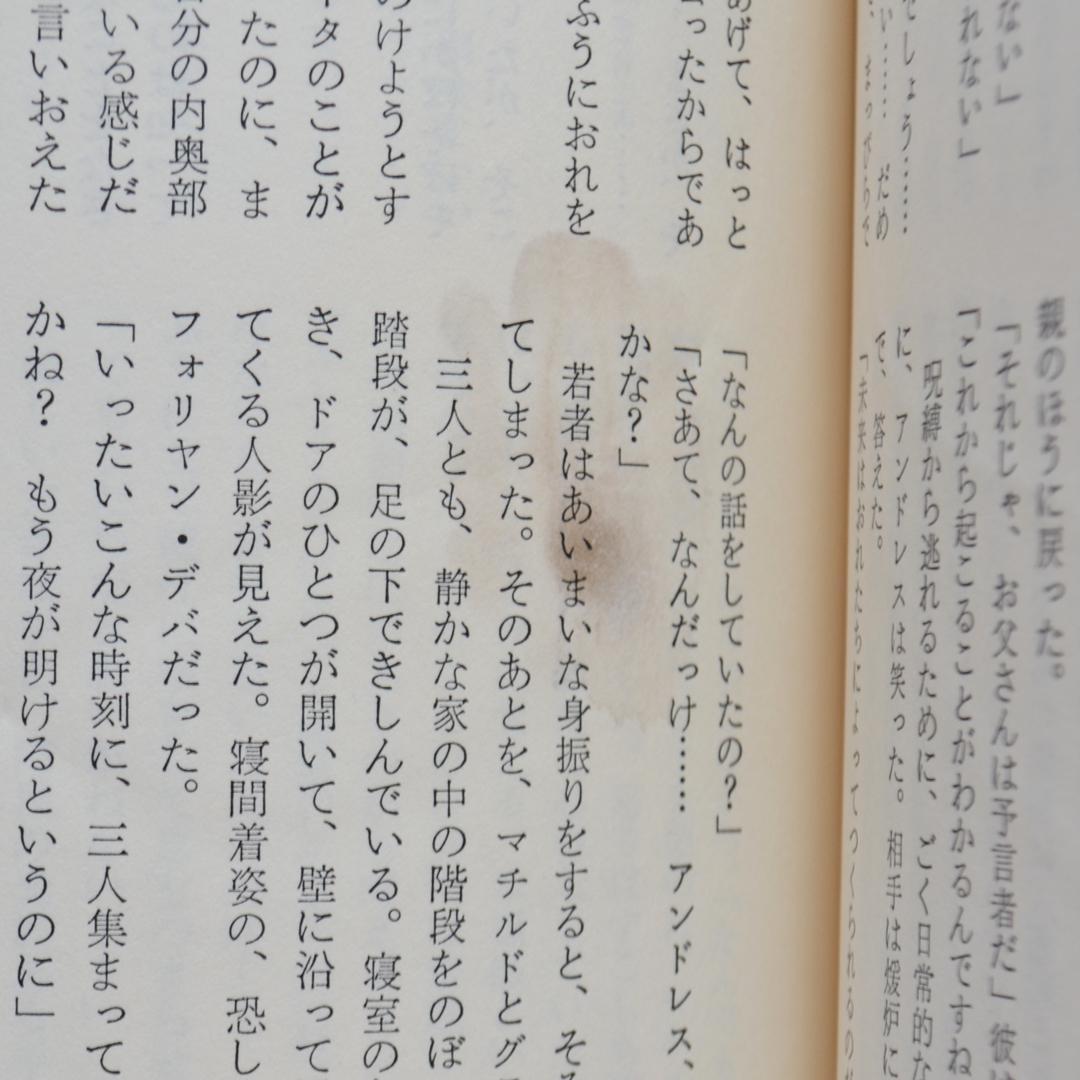 ない」
れない」
でしょう……
い……　だめ
親のほうに戻った。
「それじゃ、お父さんは予言者だ」彼は
「これから起こることがわかるんですね
呪縛から逃れるために、ごく日常的な
に、アンドレスは笑った。相手は煖炉に
で、答えた。
「未来はおれたちによってつくられるのだ
あげて、はっと
ったからであ
ふうにおれを
のけようとす
タのことが
たのに、ま
自分の内奥部
いる感じだ
言いおえた
「なんの話をしていたの？」
「さあて、なんだっけ……　アンドレス、
かな？」
若者はあいまいな身振りをすると、そ
てしまった。そのあとを、マチルドとグ
三人とも、静かな家の中の階段をのぼ
踏段が、足の下できしんでいる。寝室の
き、ドアのひとつが開いて、壁に沿って
てくる人影が見えた。寝間着姿の、恐し
フォリヤン・デバだった。
「いったいこんな時刻に、三人集まって
かね？　もう夜が明けるというのに」